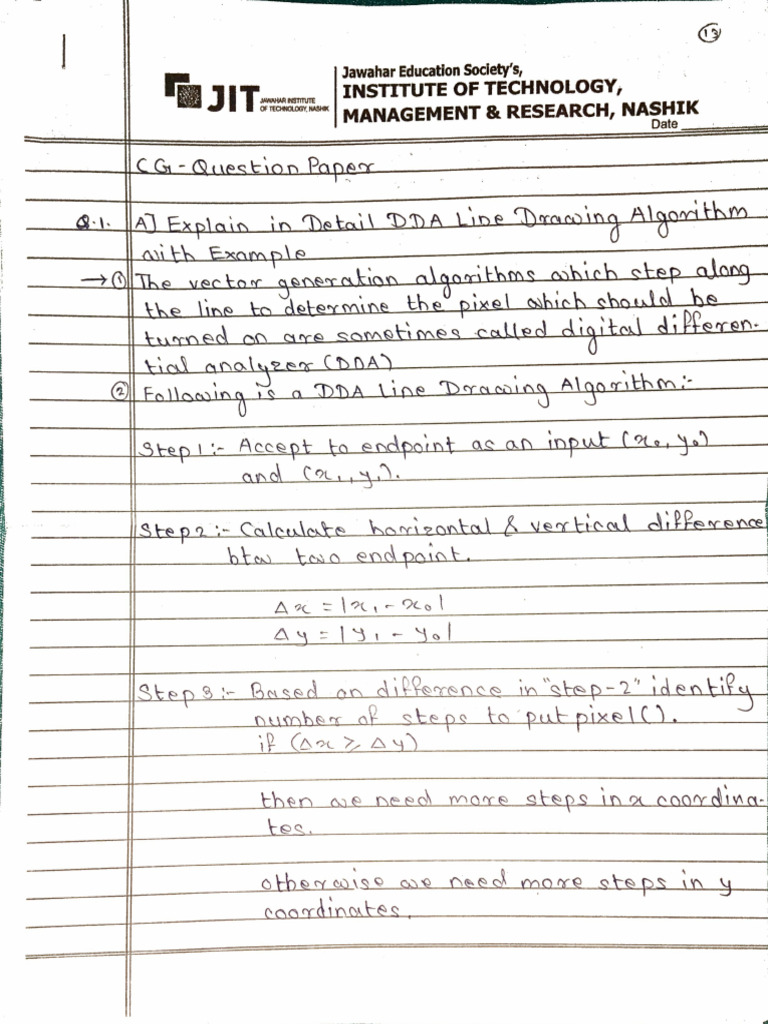 13
JIT JAWAHAR INSTITUTE
OF TECHNOLOGY, NASHIK
Jawahar Education Society's,
INSTITUTE OF TECHNOLOGY,
MANAGEMENT & RESEARCH, NASHIK
Date
CG-Question Paper
Q.1. A] Explain in Detail DDA Line Drawing Algorithm
with Example
→ ① The vector generation algorithms which step along
the line to determine the pixel which should be
turned on are sometimes called digital differen-
tial analyzer (DDA)
② Following is a DDA Line Drawing Algorithm:-
Step 1:- Accept to endpoint as an input (x₀, y₀)
and (x₁, y₁).
Step 2:- Calculate horizontal & vertical difference
btw two endpoint.
Δx = |x₁ - x₀|
Δy = |y₁ - y₀|
Step 3:- Based on difference in "step-2" identify
number of steps to put pixel().
if (Δx ≥ Δy)
then we need more steps in x coordina-
tes.
otherwise we need more steps in y
coordinates.